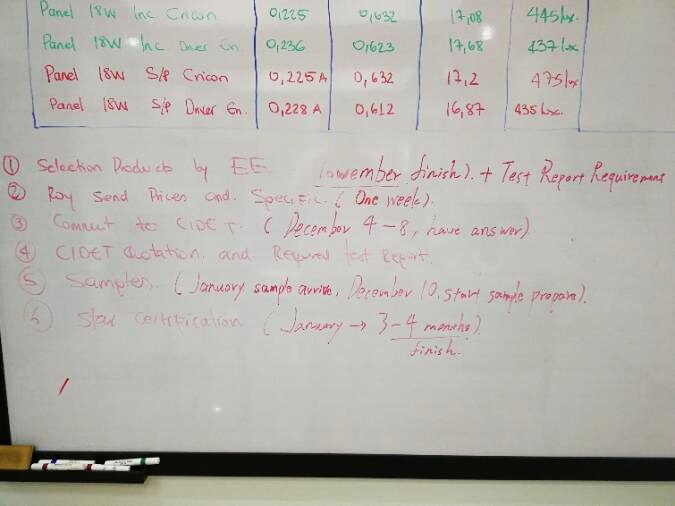 Panel 18W Inc Cricon 0,225 0,632 17,08 445 lux.
Panel 18W Inc Driver Gn. 0,236 0,623 17,68 437 lux
Panel 18W S/P Cricon 0,225 A 0,632 17,2 475 lux
Panel 18W S/P Driver Gn. 0,228 A 0,612 16,87 435 lux.
① Selection Products by EE (November finish). + Test Report Requirement
② Roy Send Prices and. Specific. ( One week).
③ Connect to CIDET. ( December 4-8, have answer)
④ CIDET Quotation. and. Required test Report.
⑤ Samples. (January sample arrive, December 10, start sample prepare).
⑥ Star Certification (January → 3-4 months)
finish.